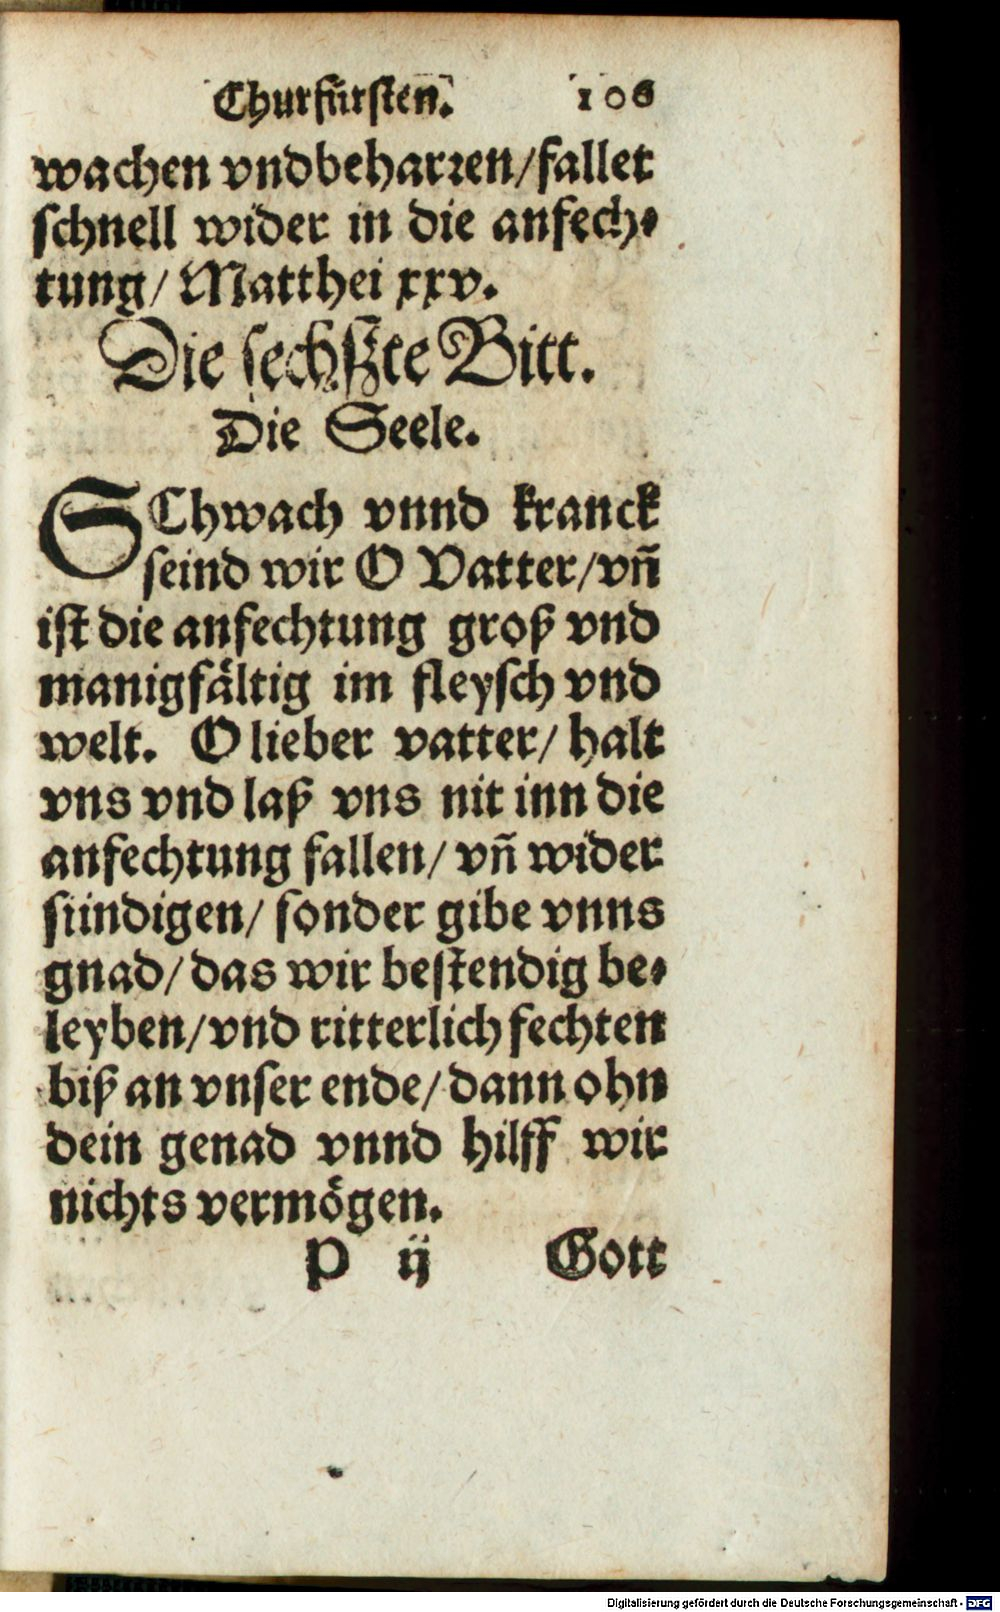 Churfürsten. 106
wachen vndbeharren/fallet
schnell wider in die anfech-
tung/ Matthei xxv.
Die sechßte Bitt.
Die Seele.
SChwach vnnd kranck
seind wir O Vatter/vñ
ist die anfechtung groß vnd
manigfältig im fleysch vnd
welt. O lieber vatter/ halt
vns vnd laß vns nit inn die
anfechtung fallen/ vñ wider
sündigen/ sonder gibe vnns
gnad/ das wir bestendig be-
leyben/vnd ritterlich fechten
biß an vnser ende/dann ohn
dein genad vnnd hilff wir
nichts vermögen.
P ij Gott
Digitalisierung gefördert durch die Deutsche Forschungsgemeinschaft - DFG